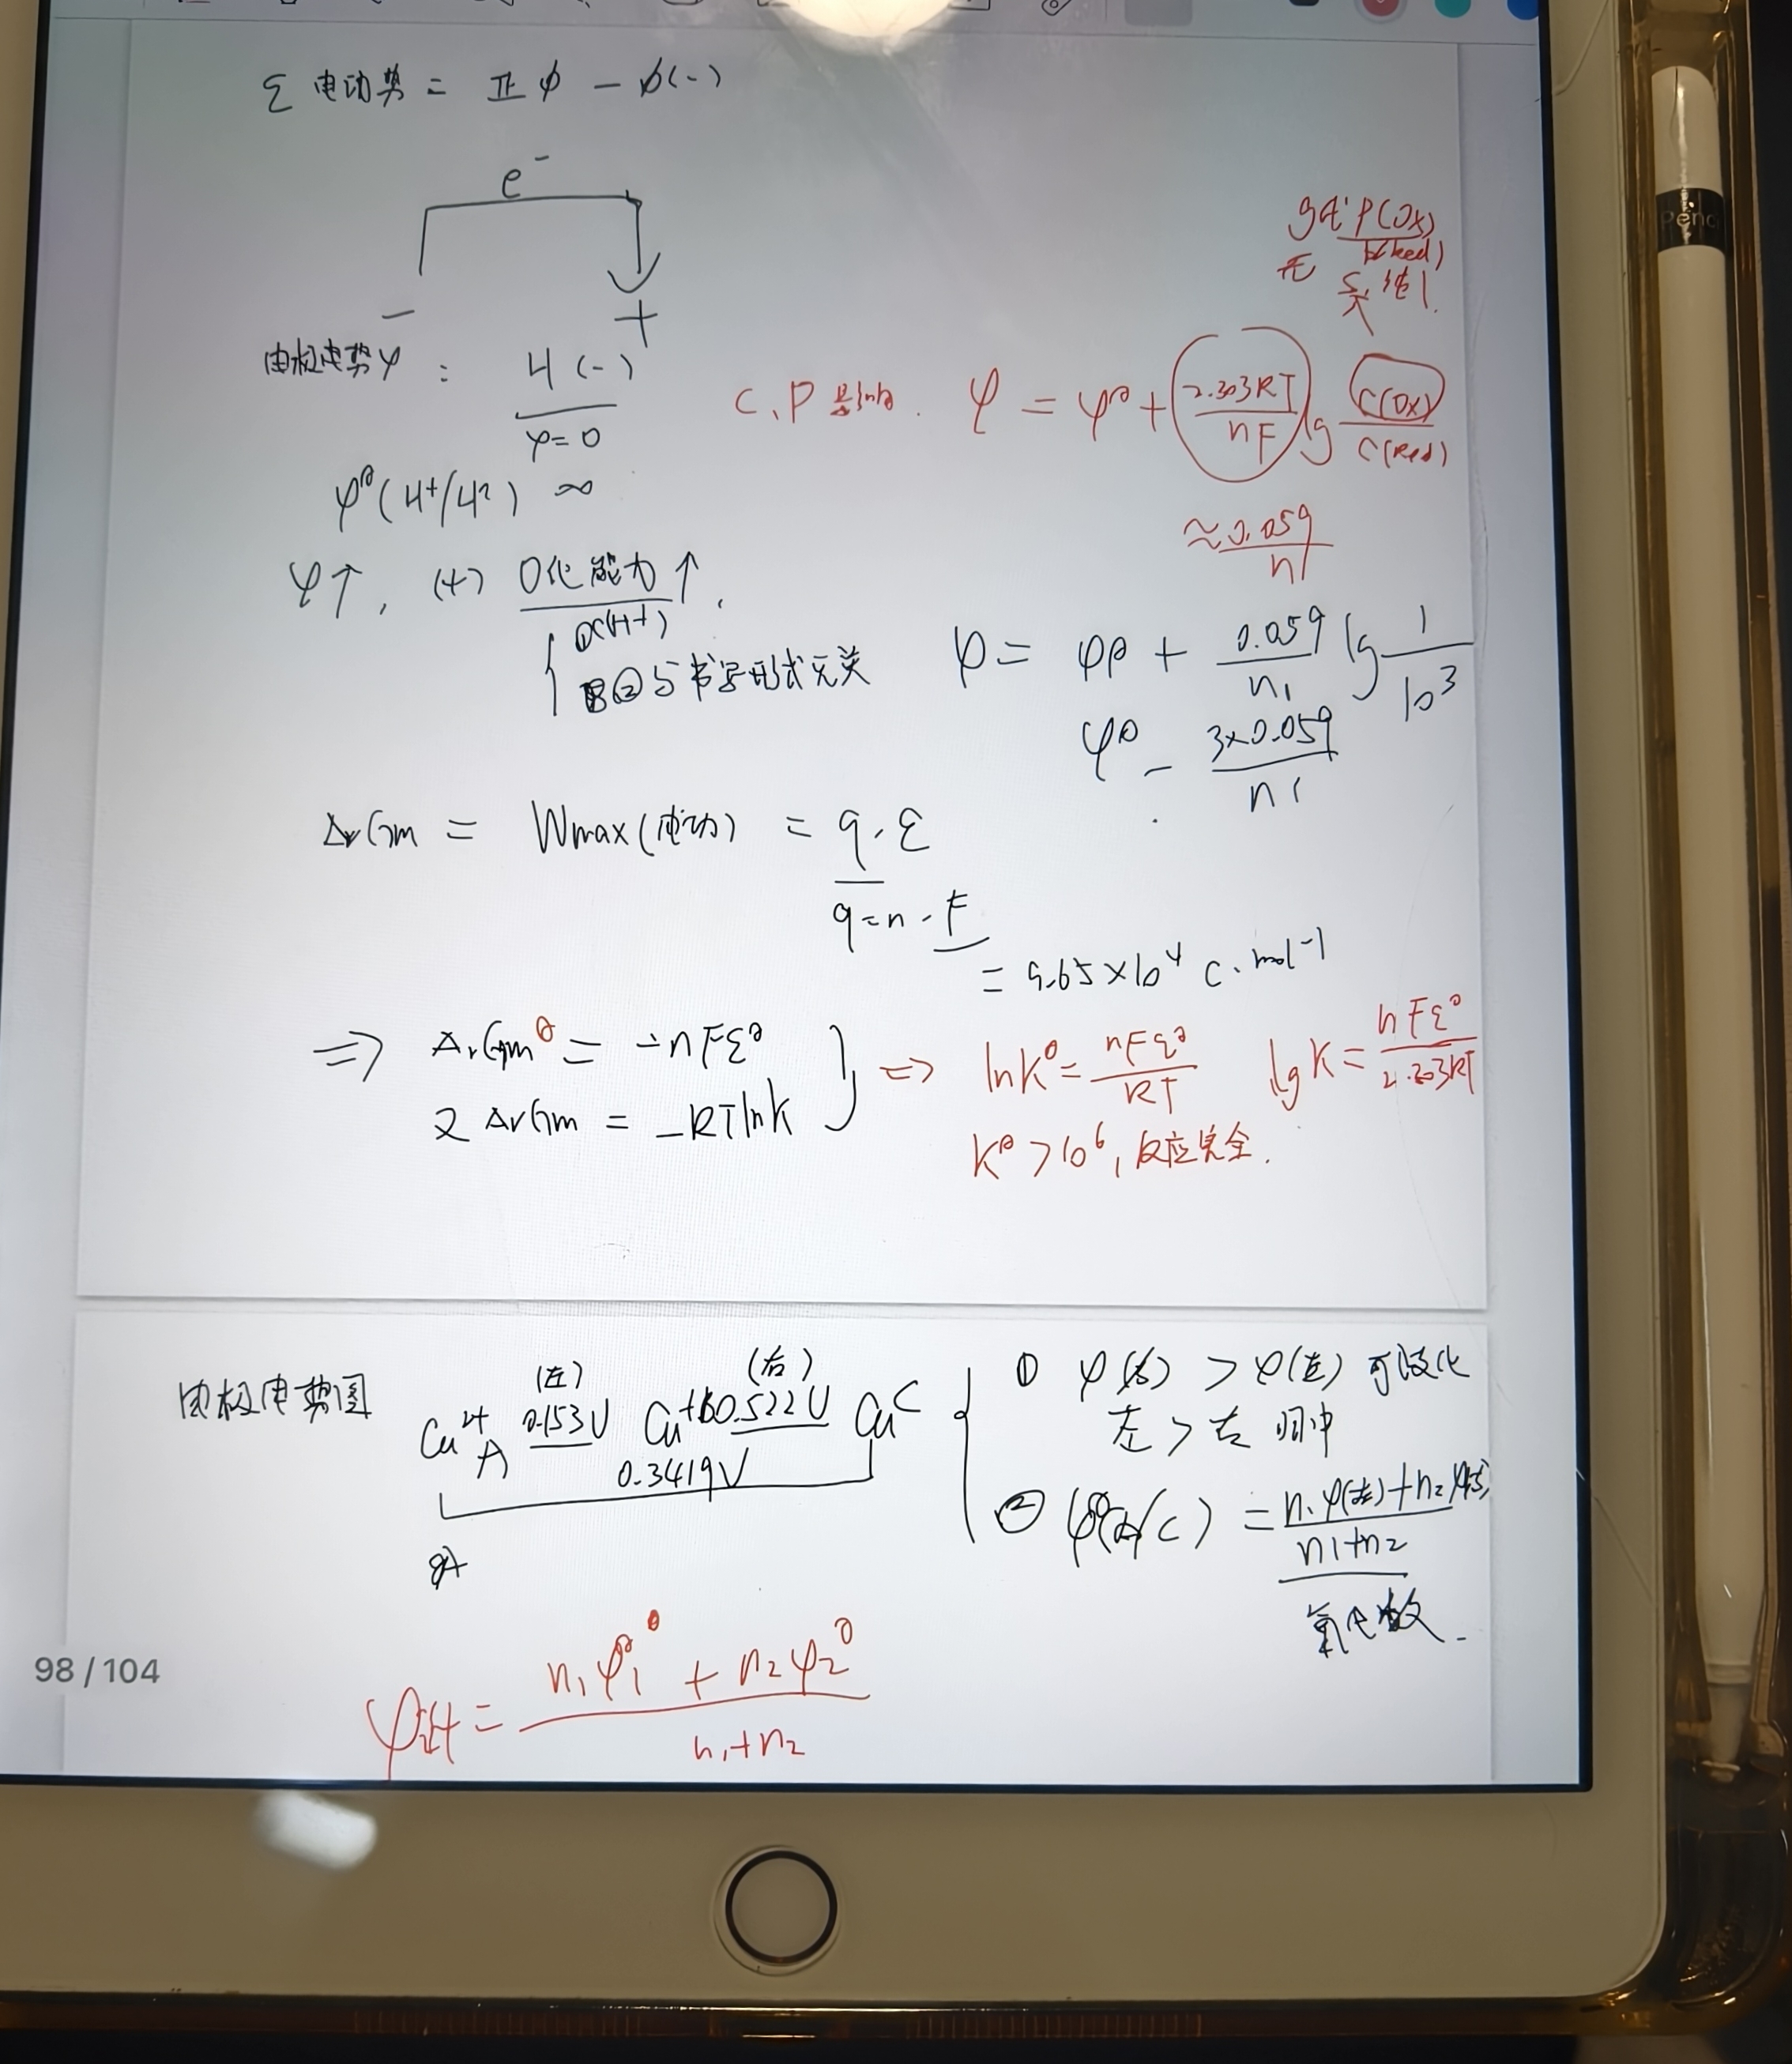 ε 电动势 = 正φ - φ(-)
e⁻
- +
电极电势φ : H (-)
φ=0
φ^θ(H⁺/H²) ∞
φ↑, (+) O化能力↑.
①C(H+)
②与书写形式无关
P(Ox)
P(Red)
关键!
C、P 影响. φ = φ^θ + 2.303RT/nF lg C(Ox)/C(Red)
≈ 0.059/n
φ = φ^θ + 0.059/n₁ lg 1/10³
φ^θ - 3×0.059/n₁
ΔrGm = Wmax(电功) = q.ε
q=n.F
= 9.65×10⁴ C.mol⁻¹
⇒ ΔrGm^θ = -nFε^θ
又 ΔrGm = -RTlnK
⇒ lnK^θ = nFε^θ/RT lgK = nFε^θ/2.303RT
K^θ>10⁶, 反应完全.
电极电势图
(左) (右)
Cu²⁺ 0.153V Cu⁺ 0.522V Cu
A B C
0.3419V
① φ(右) > φ(左) 可歧化
左>右 归中
② φ^θ(A/C) = n₁φ(左)+n₂φ(右)/n₁+n₂
氧化数.
φ = n₁φ₁^θ + n₂φ₂^θ / n₁+n₂
98 / 104